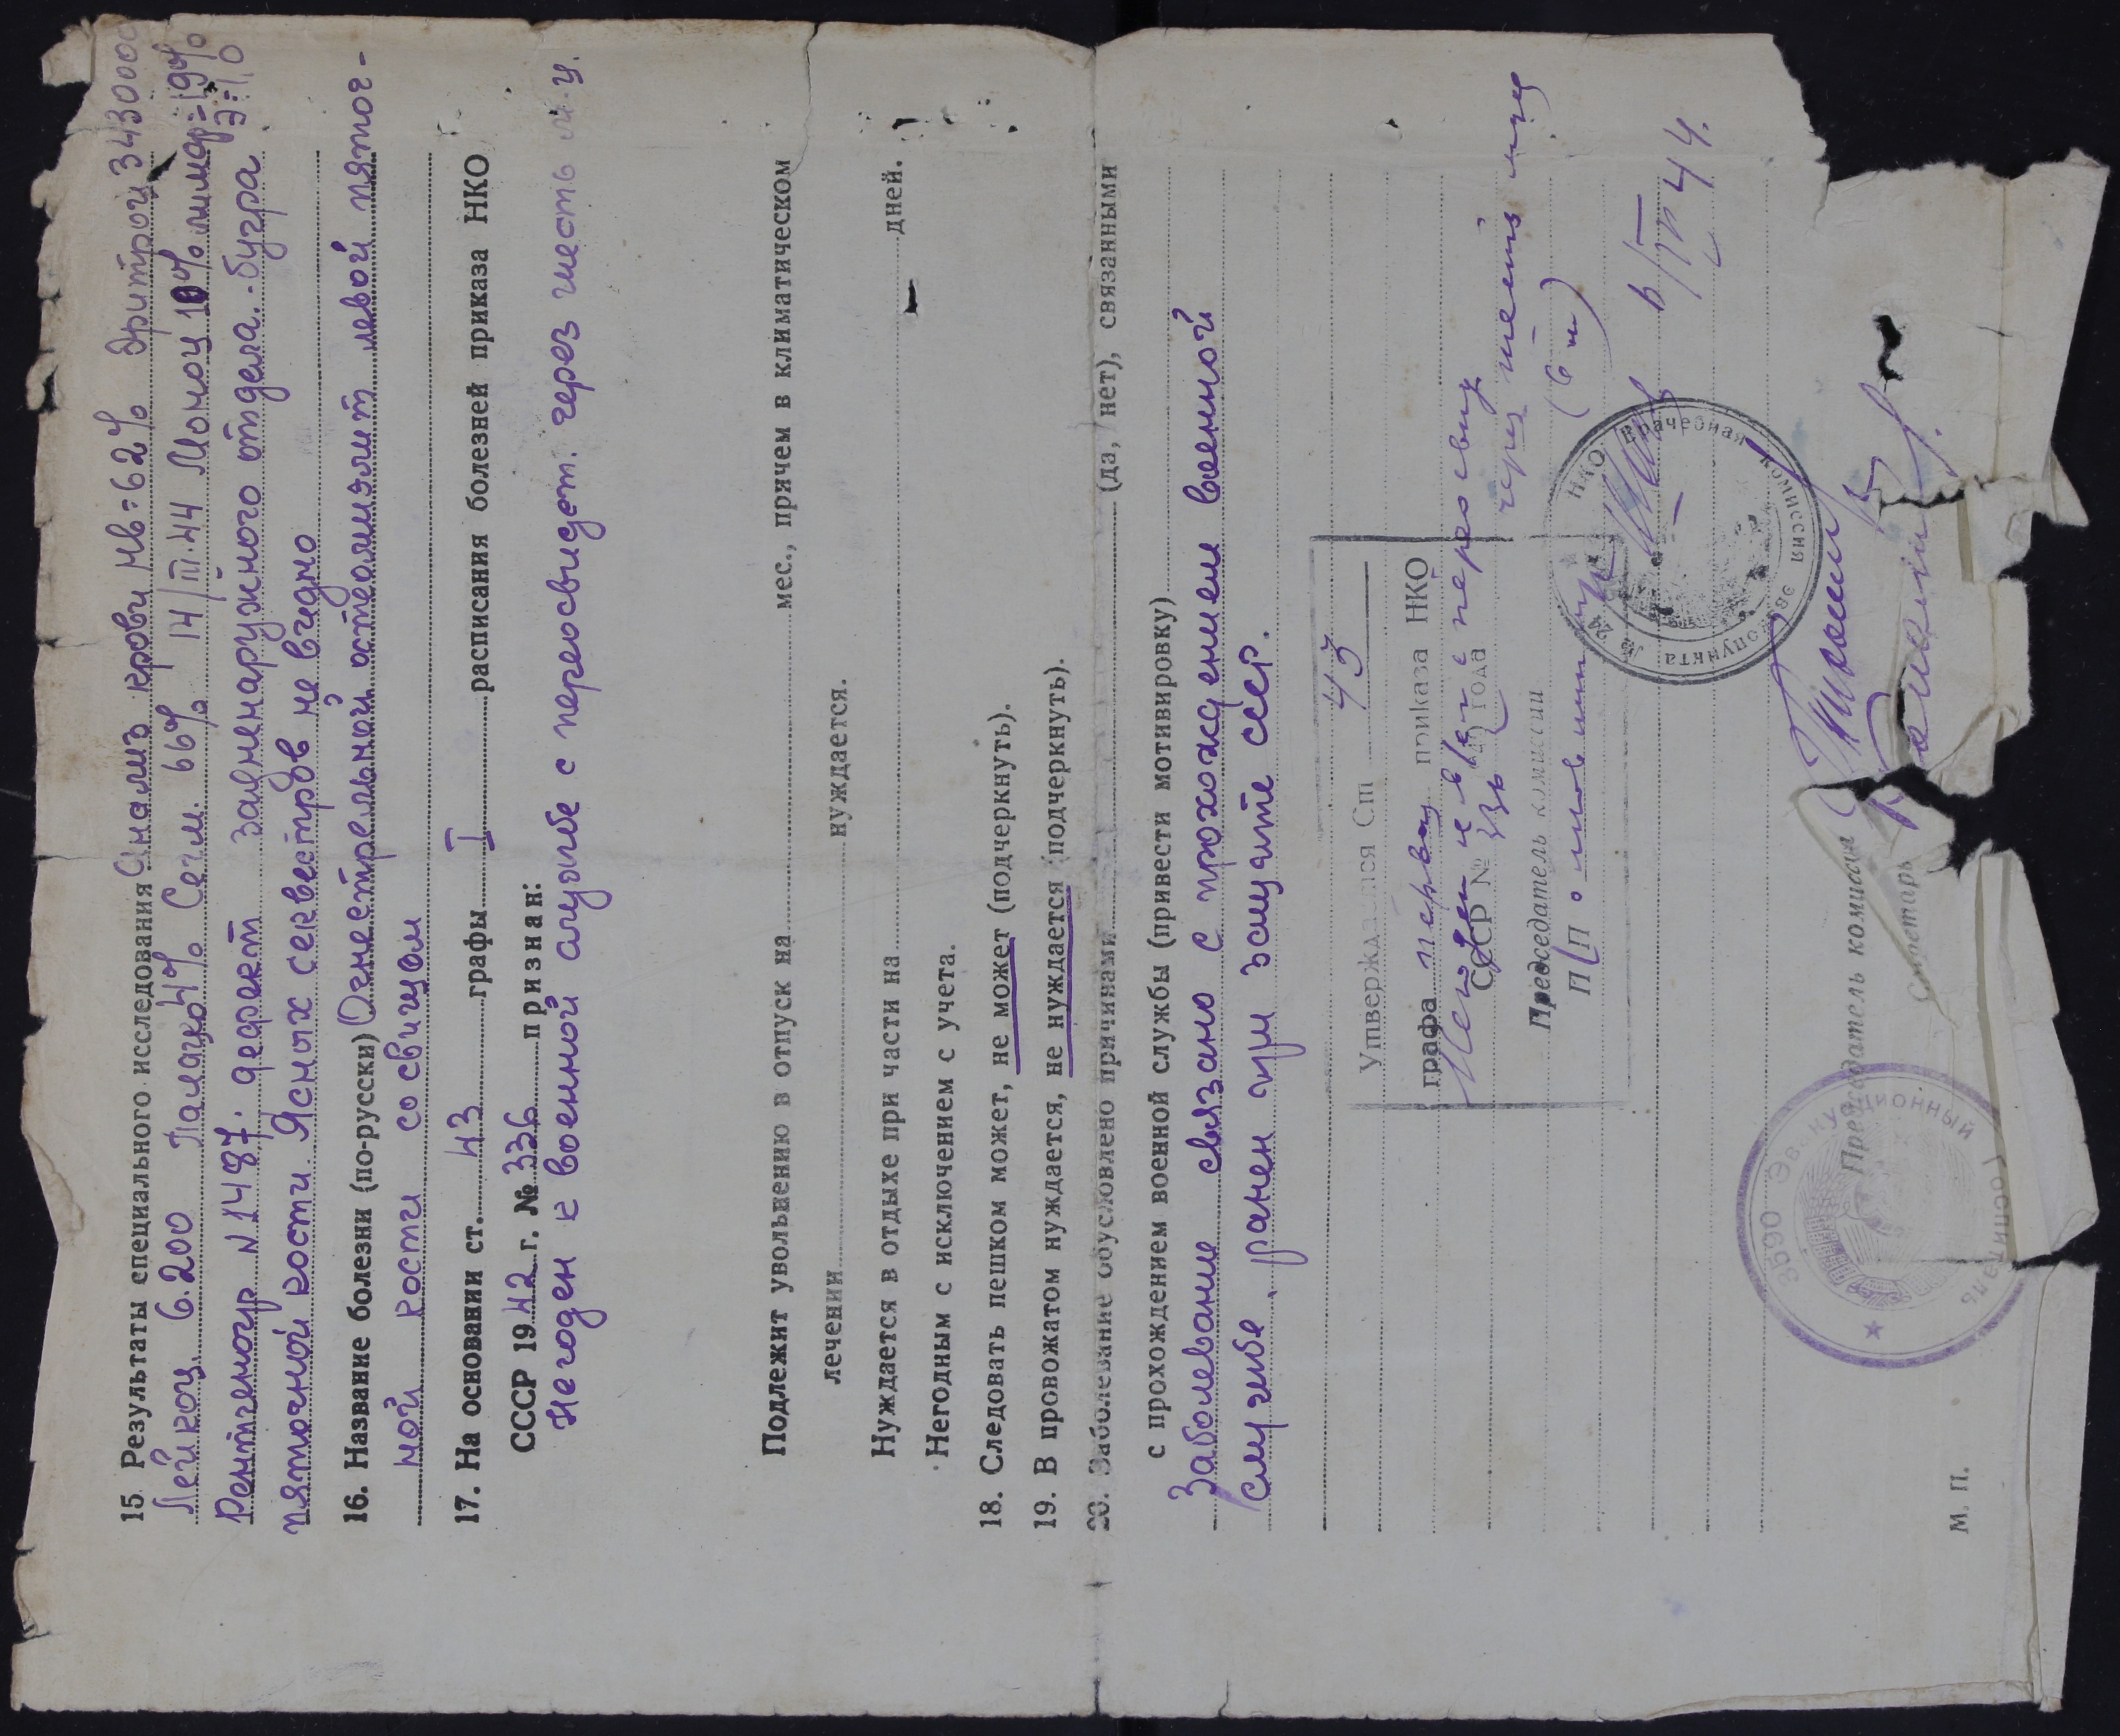 15. Результаты специального исследования Анализ крови Нв=62% Эритроц 3430000
Лейкоц. 6.200 Палачко 4% Сегм. 66% 14/III.44 Моноц 10% лимф=19%
Э=1,0
Рентгеногр N 1487. дефект задненаружного отдела бугра
пяточной кости. Ясных секвестров не видно
16. Название болезни (по-русски) Огнестрельной остеомиэлит левой пяточ-
ной кости со свищом
17. На основании ст. 43 графы I расписания болезней приказа НКО
СССР 1942 г. № 336 признан:
Негоден к военной службе с переосвидет. через шесть м-ц.
Подлежит увольнению в отпуск на мес., причем в климатическом
лечении нуждается.
Нуждается в отдыхе при части на дней.
Негодным с исключением с учета.
18. Следовать пешком может, не может (подчеркнуть).
19. В провожатом нуждается, не нуждается (подчеркнуть).
20. Заболевание обусловлено причинами (да, нет), связанными
с прохождением военной службы (привести мотивировку)
Заболевание связано с прохождением военной
службе, ранен при защите СССР.
Утверждался Ст 43
графа первая приказа НКО
СССР № 336 года переосвид
через шесть мц
(6 м)
Председатель комиссии
П/П
НКО Врачебная комиссия эвакопункта №
6/IV 44.
Председатель комиссии
Секретарь
3590 Эвакуационный госпиталь
М. П.